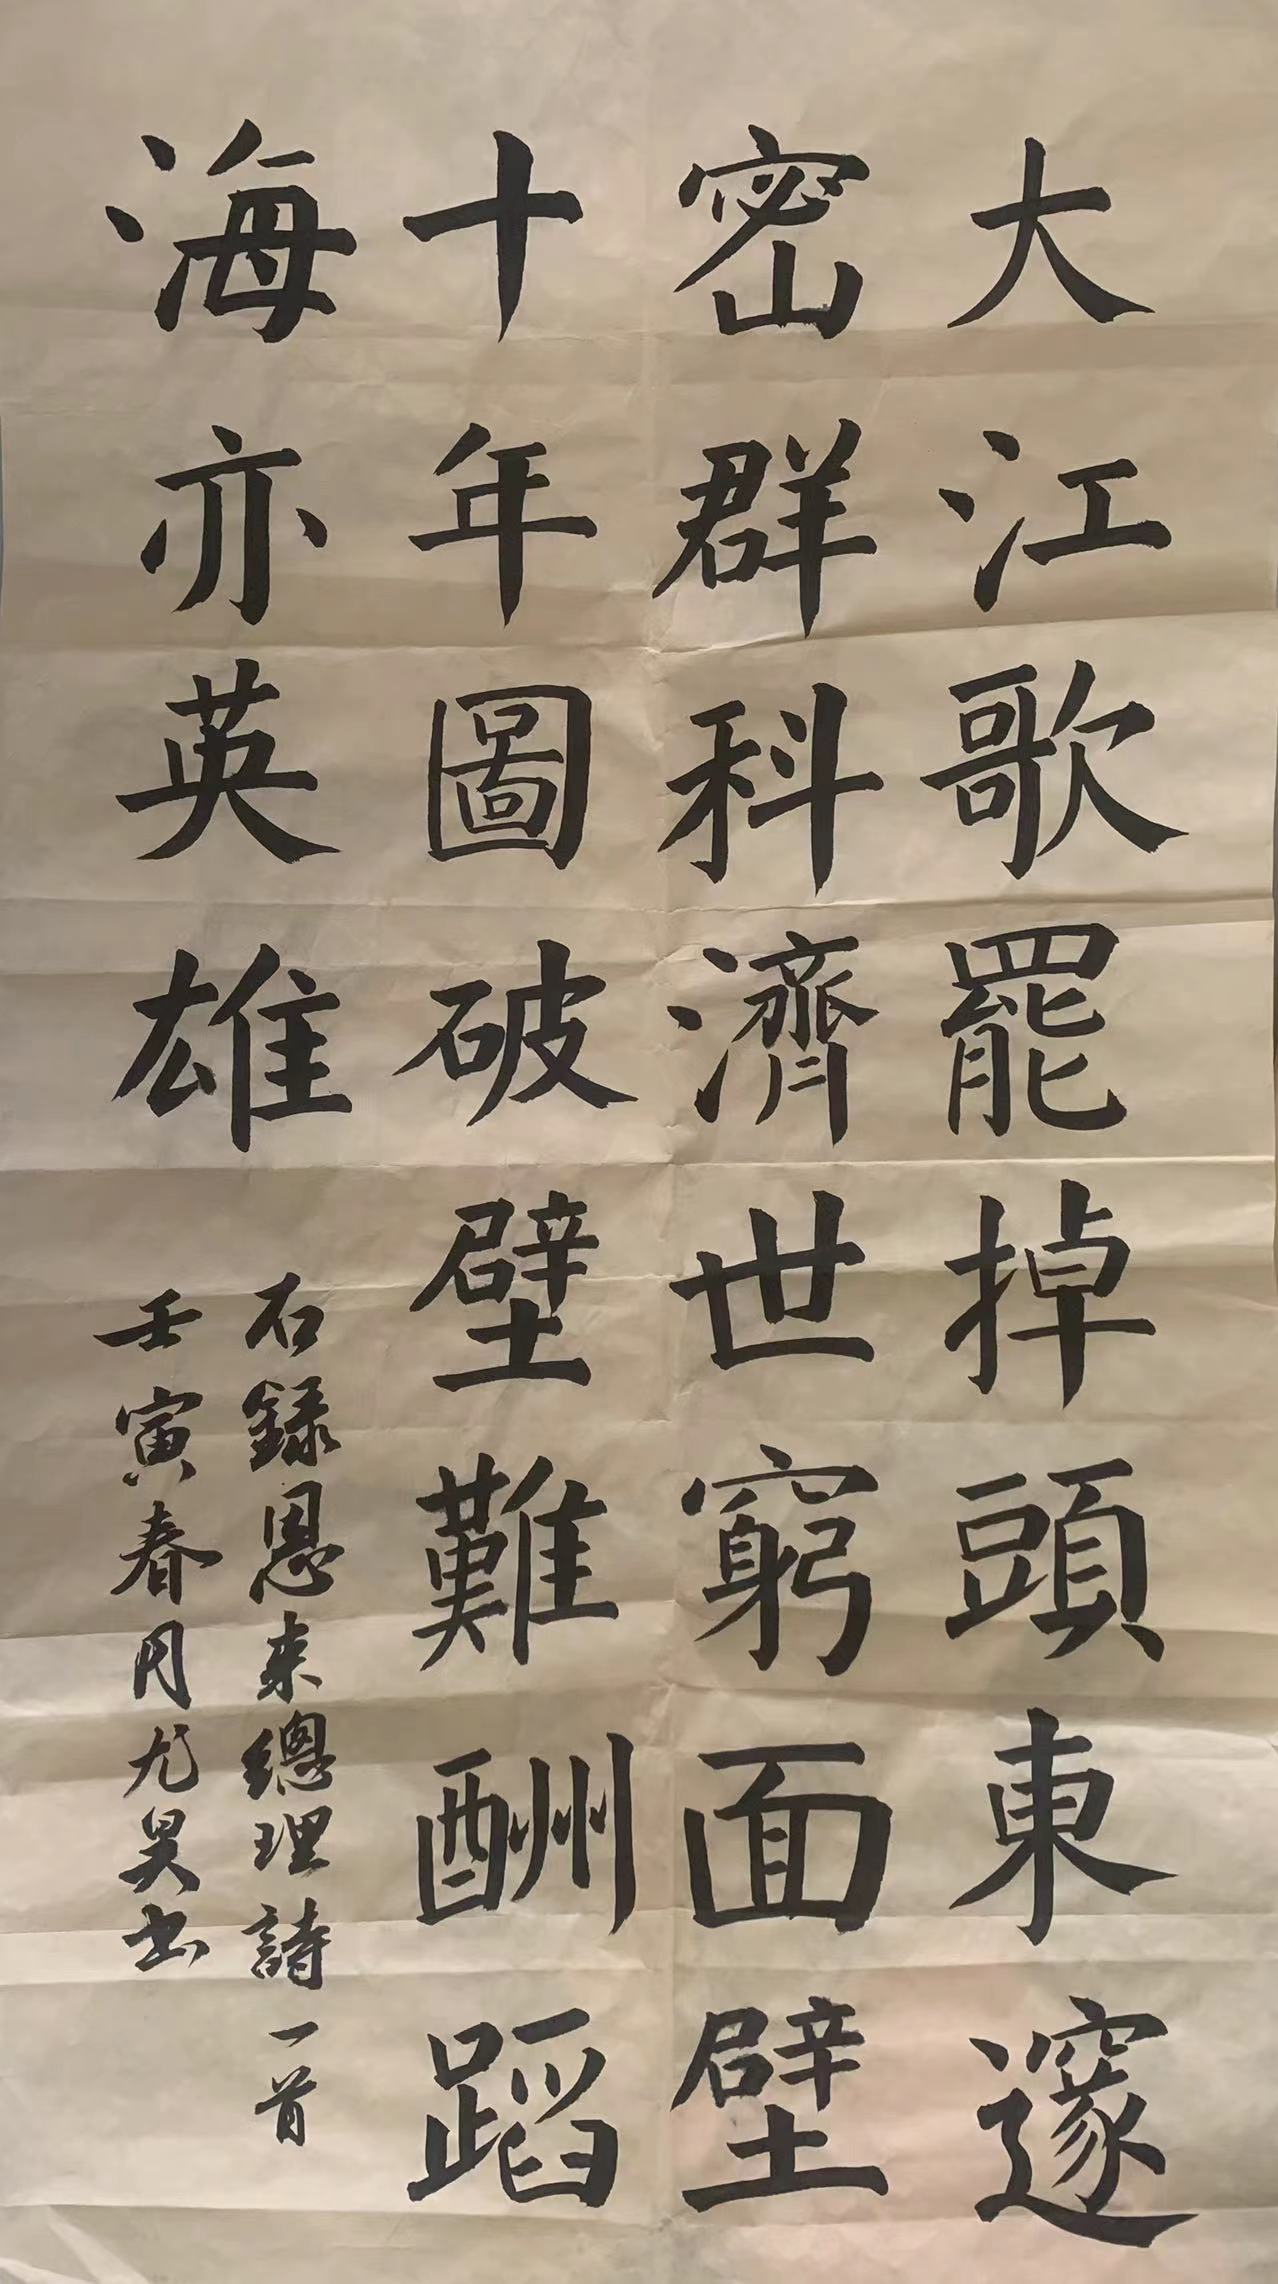 大江歌罷掉頭東邃
密群科濟世窮面壁
十年圖破壁難酬蹈
海亦英雄
右錄恩来總理詩一首
壬寅春月尤昊书